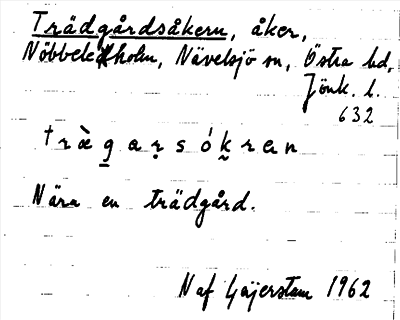 Trädgårdsåkern, åker,
Nöbbeleholm, Nävelsjö sn, Östra hd,
Jönk. l.
632
trὰg̲aṛsókr̰en
Nära en trädgård.
N af Geijerstam 1962